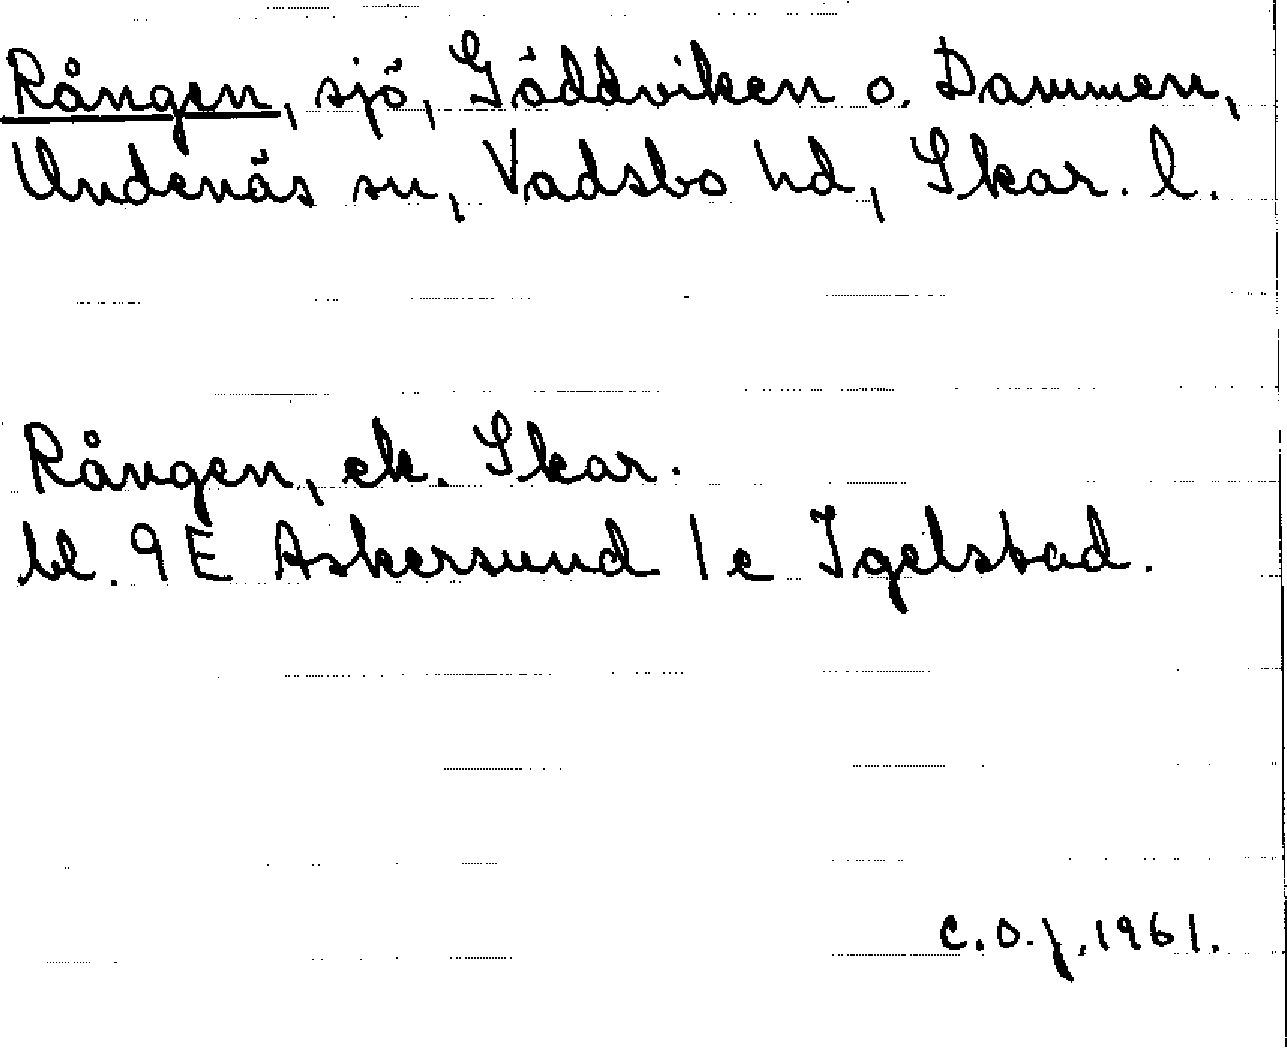 Rången, sjö, Gäddviken o. Dammen,
Undenäs sn, Vadsbo hd, Skar. l.
Rången, ek. Skar.
bl. 9E Askersund 1c Igelstad.
C.O.J. 1961.